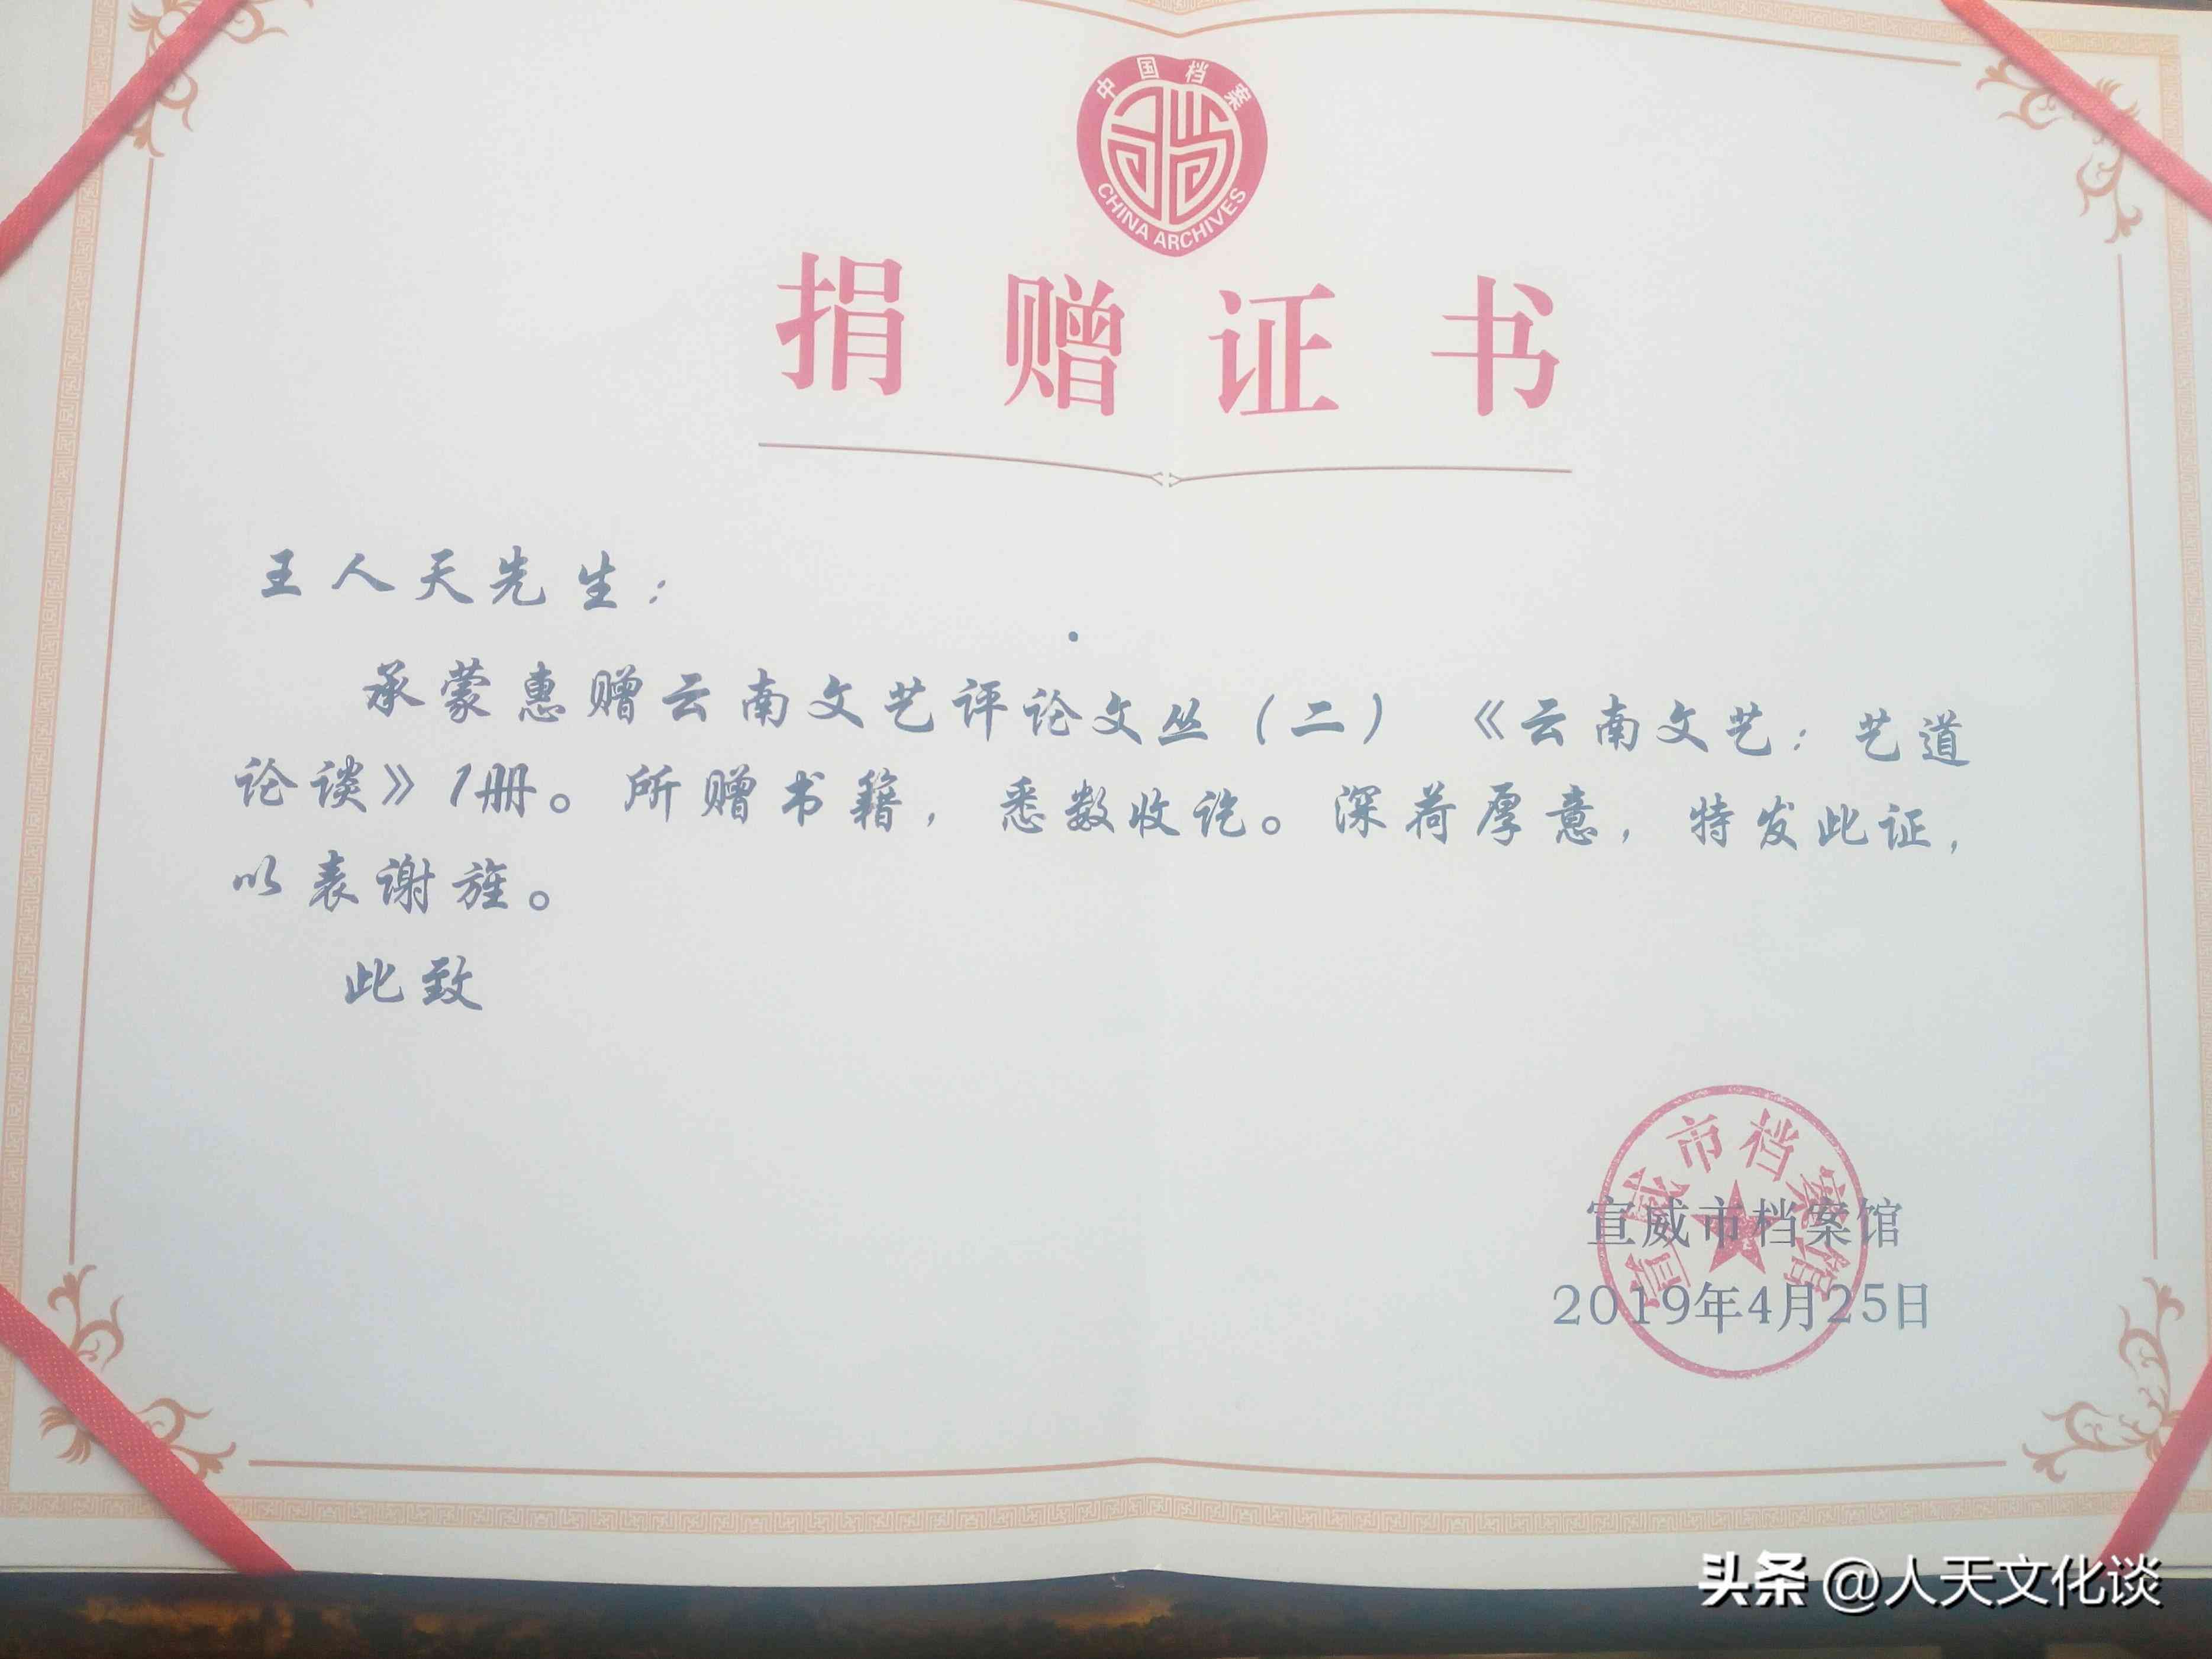 中国档案
CHINA ARCHIVES
捐赠证书
王人天先生：
承蒙惠赠云南文艺评论文丛（二）《云南文艺：艺道
论谈》1册。所赠书籍，悉数收讫。深荷厚意，特发此证，
以表谢旌。
此致
宣威市档案馆
宣威市档案馆
2019年4月25日
头条 @人天文化谈